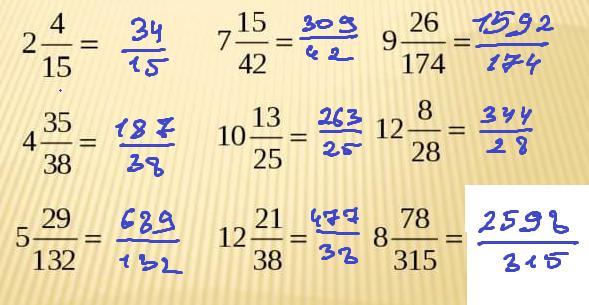 2 4/15 = 34/15    7 15/42 = 309/42    9 26/174 = 1592/174
4 35/38 = 187/38    10 13/25 = 263/25    12 8/28 = 344/28
5 29/132 = 689/132    12 21/38 = 477/38    8 78/315 = 2598/315